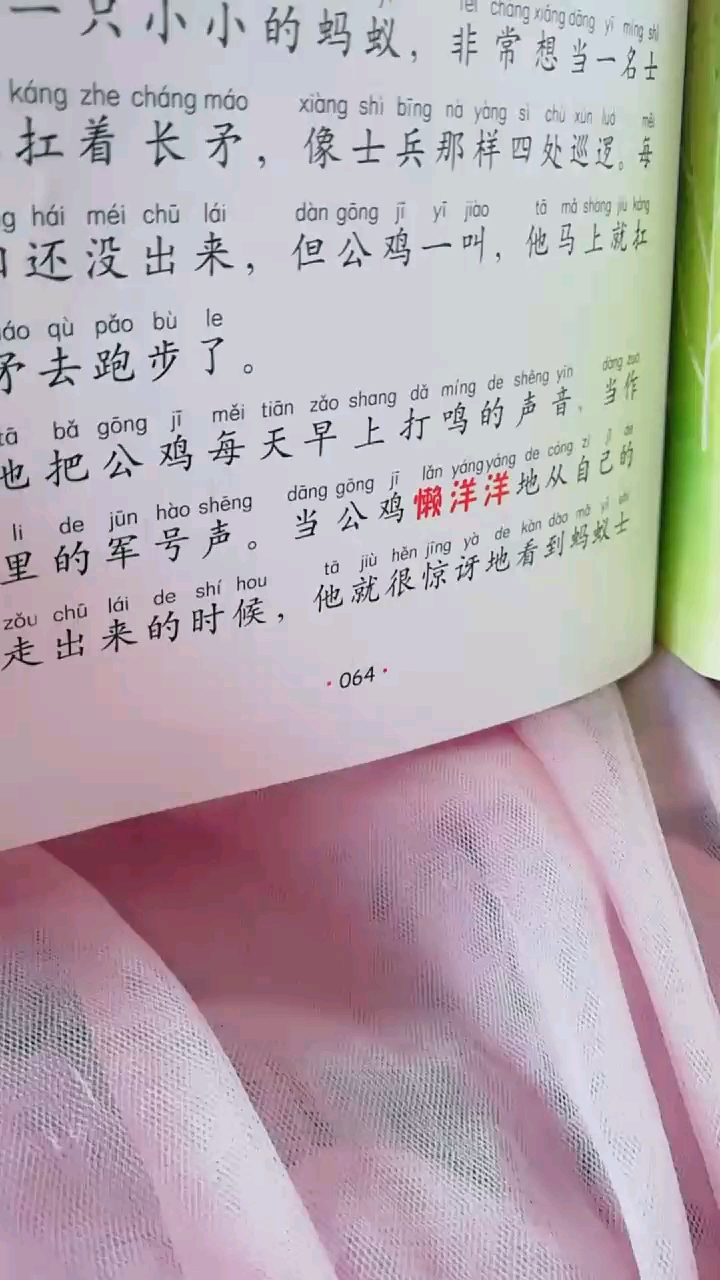 一只小小的蚂蚁，
cháng xiǎng dāng yì míng shì
非常想当一名士
káng zhe cháng máo xiàng shì bīng nà yàng sì chù xún luó měi
扛着长矛，像士兵那样四处巡逻。每
hái méi chū lái dàn gōng jī yí jiào tā mǎ shàng jiù káng
还没出来，但公鸡一叫，他马上就扛
qù pǎo bù le
矛去跑步了。
tā bǎ gōng jī měi tiān zǎo shang dǎ míng de shēng yīn dàng zuò
他把公鸡每天早上打鸣的声音，当作
li de jūn hào shēng dāng gōng jī lǎn yáng yáng de cóng zì jǐ de
里的军号声。当公鸡懒洋洋地从自己的
zǒu chū lái de shí hou tā jiù hěn jīng yà de kàn dào mǎ yǐ shì
走出来的时候，他就很惊讶地看到蚂蚁士
·064·